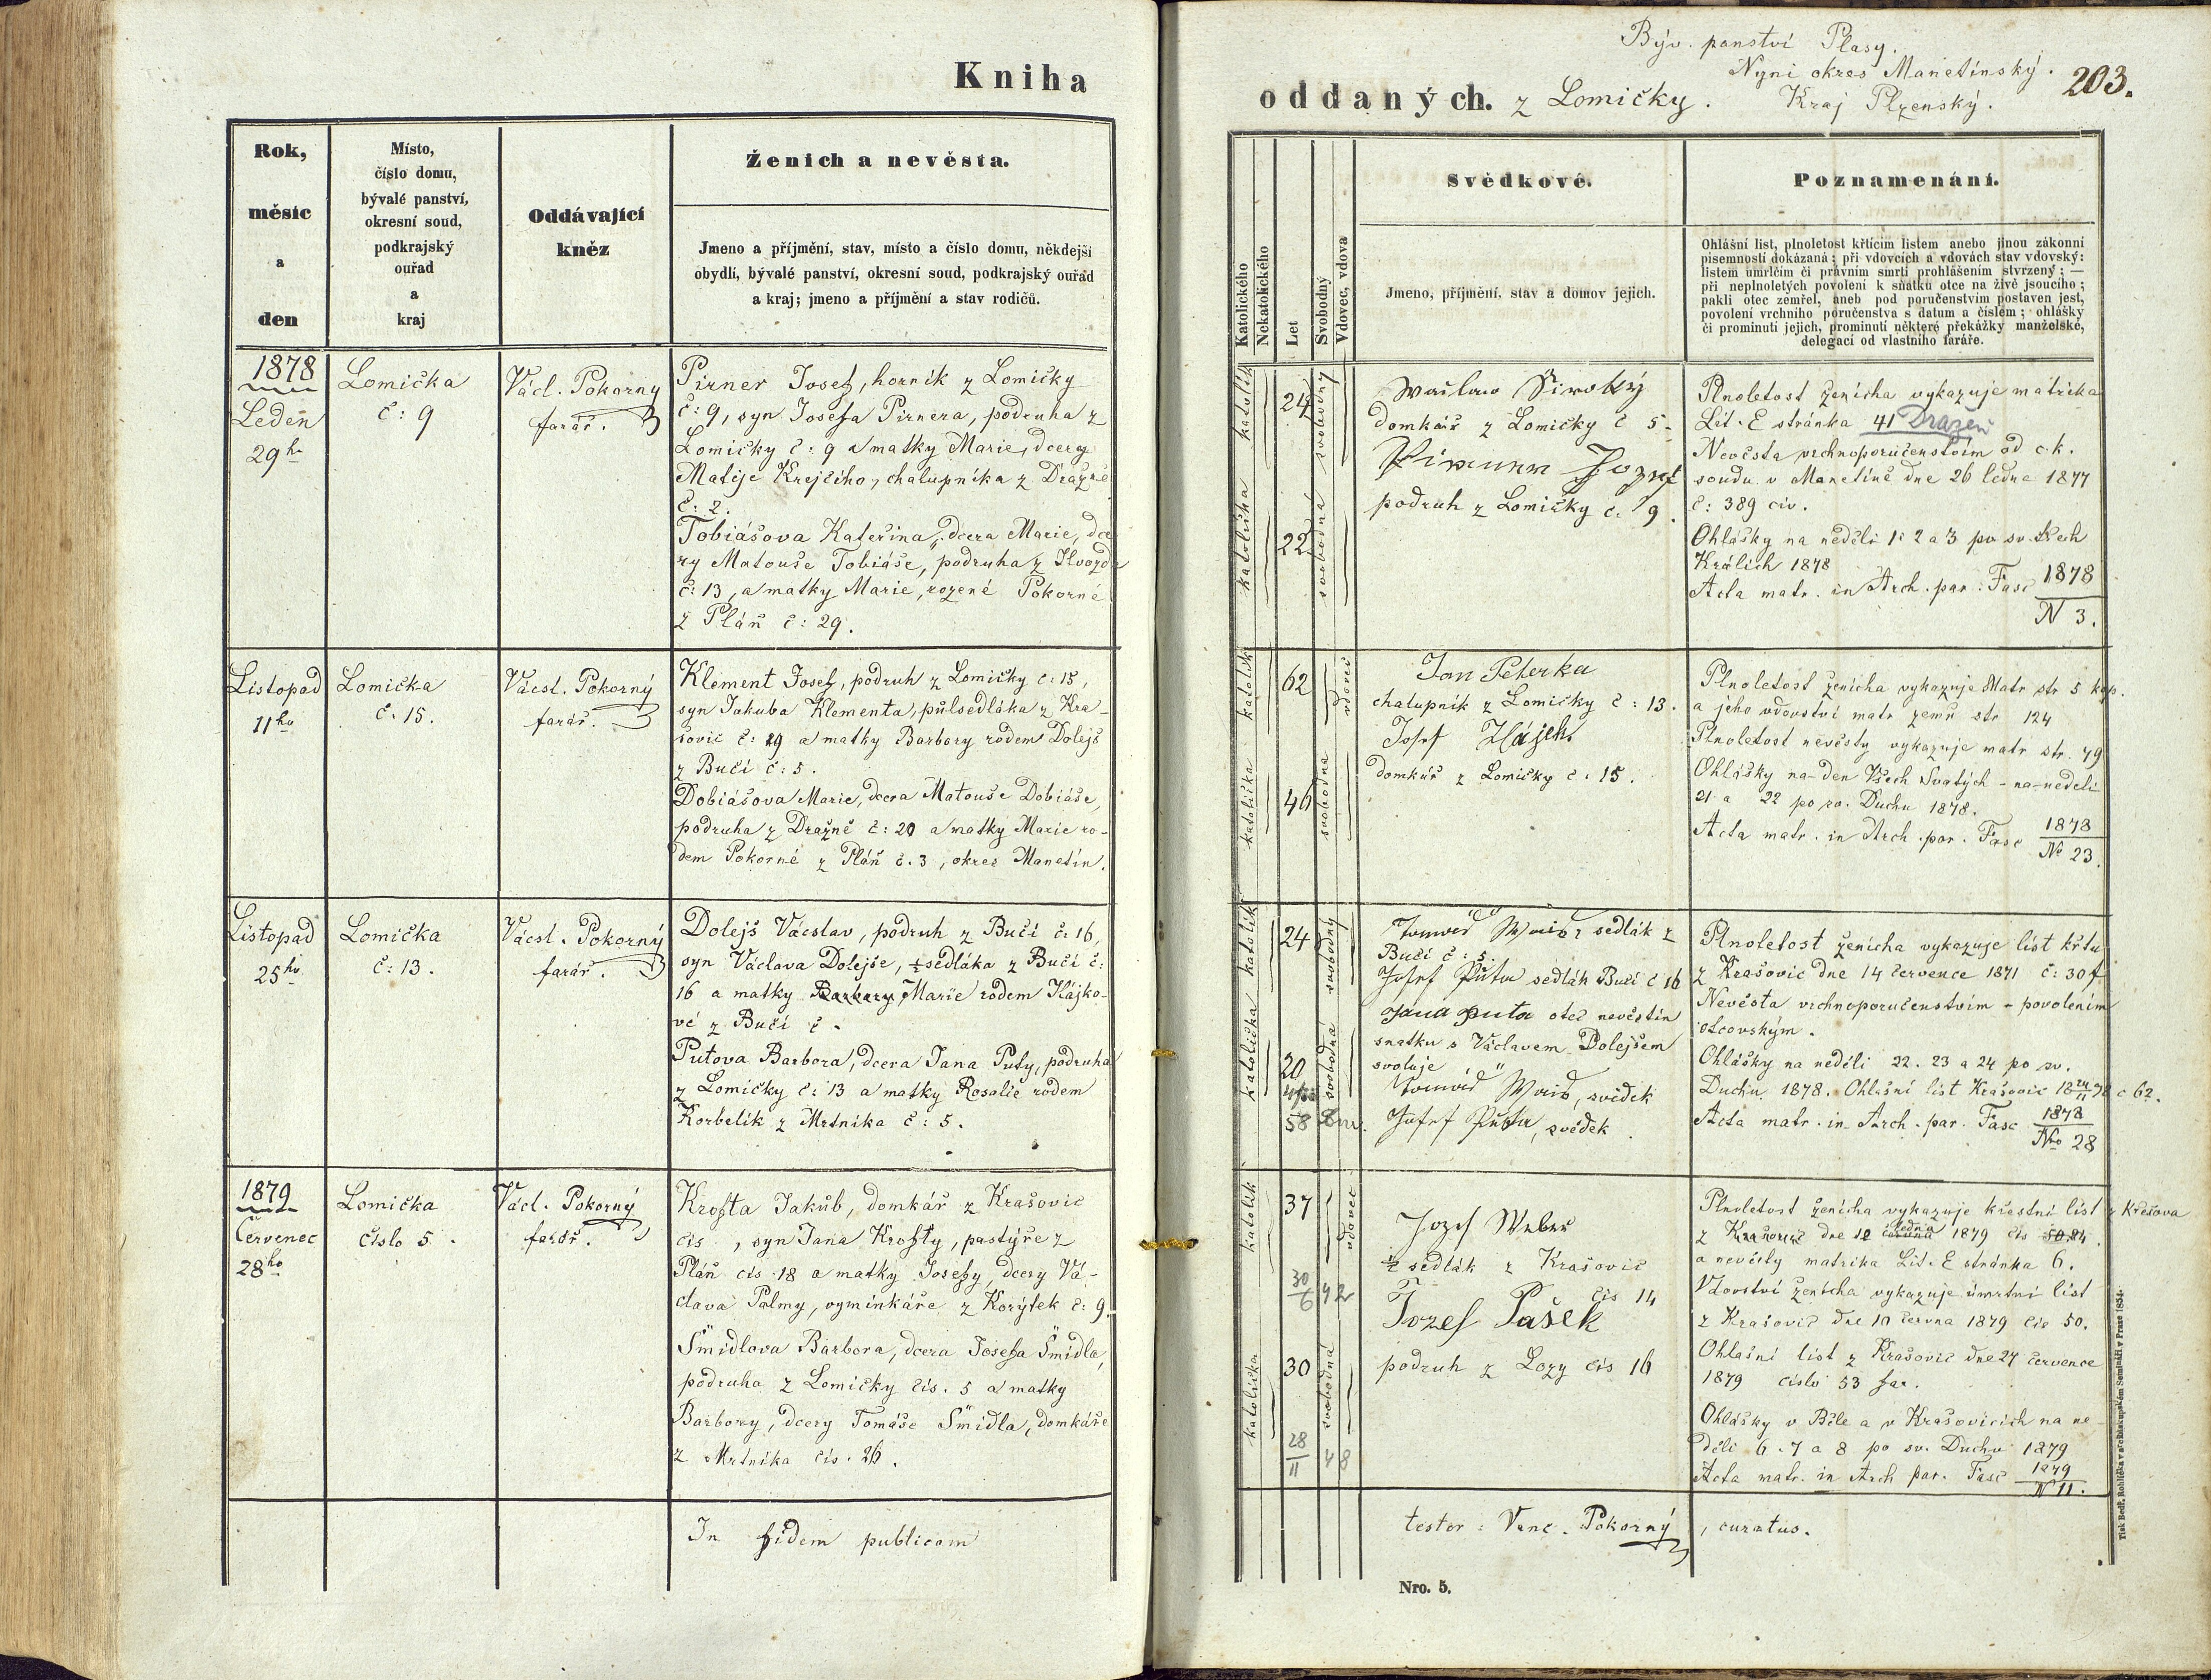 Kniha
Rok,
měsíc
a
den
Místo,
číslo domu,
bývalé panství,
okresní soud,
podkrajský
ouřad
a
kraj
Oddávající
kněz
Ženich a nevěsta.
Jmeno a příjmění, stav, místo a číslo domu, někdejší
obydlí, bývalé panství, okresní soud, podkrajský ouřad
a kraj; jmeno a příjmění a stav rodičů.
1878
Leden
29ho
Lomička
č: 9
Václ. Pokorny
farář.
Pirner Josef, horník z Lomičky
č: 9, syn Josefa Pirnera, podruha z
Lomičky č: 9 a matky Marie, dcery
Matěje Krejčího, chalupníka z Dražně
č: 2.
Tobiášova Kateřina, dcera Marie, dce
ry Matouše Tobiáše, podruha z Hvozda
č: 13, a matky Marie, rozené Pokorné
z Pláň č: 29.
Listopad
11ho
Lomička
č. 15.
Václ. Pokorný
farář.
Klement Josef, podruh z Lomičky č: 15,
syn Jakuba Klementa, půlsedláka z Kra-
šovic č: 29 a matky Barbory rodem Dolejš
z Bučí č: 5.
Dobiášova Marie, dcera Matouše Dobiáše,
podruha z Dražně č: 20 a matky Marie ro-
dem Pokorné z Pláň č. 3, okres Manetín.
Listopad
25ho
Lomička
č: 13.
Vácsl. Pokorný
farář.
Dolejš Václav, podruh z Bučí č. 16,
syn Václava Dolejše, ½ sedláka z Bučí č:
16 a matky Barbory Marie rodem Hájko-
vé z Bučí č -
Putova Barbora, dcera Jana Puty, podruha
z Lomičky č: 13 a matky Rosalie rodem
Korbelík z Mrtníka č: 5.
1879
Červenec
28ho
Lomička
číslo 5.
Václ. Pokorný
farář.
Krofta Jakub, domkář z Krašovic
čís , syn Jana Krofty, pastýře z
Pláň čís 18 a matky Josefy, dcery Vá-
clava Palmy, vyminkáře z Korýtek č: 9.
Šmidlova Barbora, dcera Josefa Šmidla,
podruha z Lomičky čís. 5 a matky
Barbory, dcery Tomáše Šmidla, domkáře
z Mrtníka čís. 26.
In fidem publicam
Býv. panství Plasy.
Nyní okres Manetínský.
203.
oddaných. z Lomičky. Kraj Plzenský.
Katolického
Nekatolického
Let
Svobodný
Vdovec, vdova
Svědkové.
Jmeno, příjmění, stav a domov jejich.
Poznamenání.
Ohlášní list, plnoletost křticím listem anebo jinou zákonní
písemností dokázaná; při vdovcích a vdovách stav vdovský:
listem umrlčím či právním smrti prohlášením stvrzený; —
při neplnoletých povolení k sňatku otce na živě jsoucího;
pakli otec zemřel, aneb pod poručenstvím postaven jest,
povolení vrchního poručenstva s datum a číslem; ohlášky
či prominutí jejich, prominutí některé překážky manželské,
delegací od vlastního faráře.
katolík
24
svobodný
katolička
22
svobodná
Waclaw Široký
domkář z Lomičky č 5.
Pirner Jozef
podruh z Lomičky č. 9.
Plnoletost ženicha vykazuje matrika
Lit. E stránka 41 Dražeň
Nevěsta vrchnoporučenstvím od c. k.
soudu v Manetíně dne 26 ledna 1877
č: 389 civ.
Ohlášky na neděli 1. 2 a 3 po sv. třech
Králích 1878
Acta matr. in Arch. par. Fasc 1878
N 3.
katolík
62
vdovec
katolička
46
svobodna
Jan Peterka
chalupník z Lomičky č: 13.
Josef Hájek
domkář z Lomičky č: 15.
Plnoletost ženicha vykazuje Matr str 5 kop.
a jeho vdovství matr zemř str 124
Plnoletost nevěsty vykazuje matr str. 49
Ohlášky na den Všech Svatých - na neděli
21 a 22 po sv. Duchu 1878.
Acta matr. in Arch. par. Fasc 1878
No 23.
katolík
24
svobodný
katolička
20
svobodná
58
sedlák z
Bučí č: 5.
Josef Puta sedlák Bučí č 16
Jana Puta otec nevěstin
snatku s Václavem Dolejšem
svoluje
, svědek
Josef Puta, svědek
Plnoletost ženicha vykazuje list křtu
z Krašovic dne 14 července 1871 č: 30 f
Nevěsta vrchnoporučenstvím - povolením
otcovským.
Ohlášky na neděli 22. 23 a 24 po sv.
Duchu 1878. Ohlašní list Krašovic 18 24/11 78 č 62.
Acta matr. in Arch. par. Fasc 1878
Nro 28
katolík
37
vdovec
30/6 42
katolička
30
svobodná
28/11 48
Jozef Weber
½ sedlák z Krašovic
čís 14
Jozef Pašek
podruh z Lozy čís 16
Plnoletost ženicha vykazuje křestní list z Křečova
z Krašovic dne 12 června ledna 1879 čís 50.84.
a nevěsty matrika Lit. E stránka 6.
Vdovství ženicha vykazuje úmrtní list
z Krašovic dne 10 června 1879 čís 50.
Ohlašní list z Krašovic dne 27 července
1879 číslo 53 far.
Ohlášky v Bíle a v Krašovicích na ne-
děli 6. 7 a 8 po sv. Duchu 1879
Acta matr. in Arch par. Fasc 1879
N 11.
testor: Venc. Pokorný, curatus.
Nro. 5.
Tisk Bedř. Rohlíčka v arcibiskupském Semináři v Praze 1854.